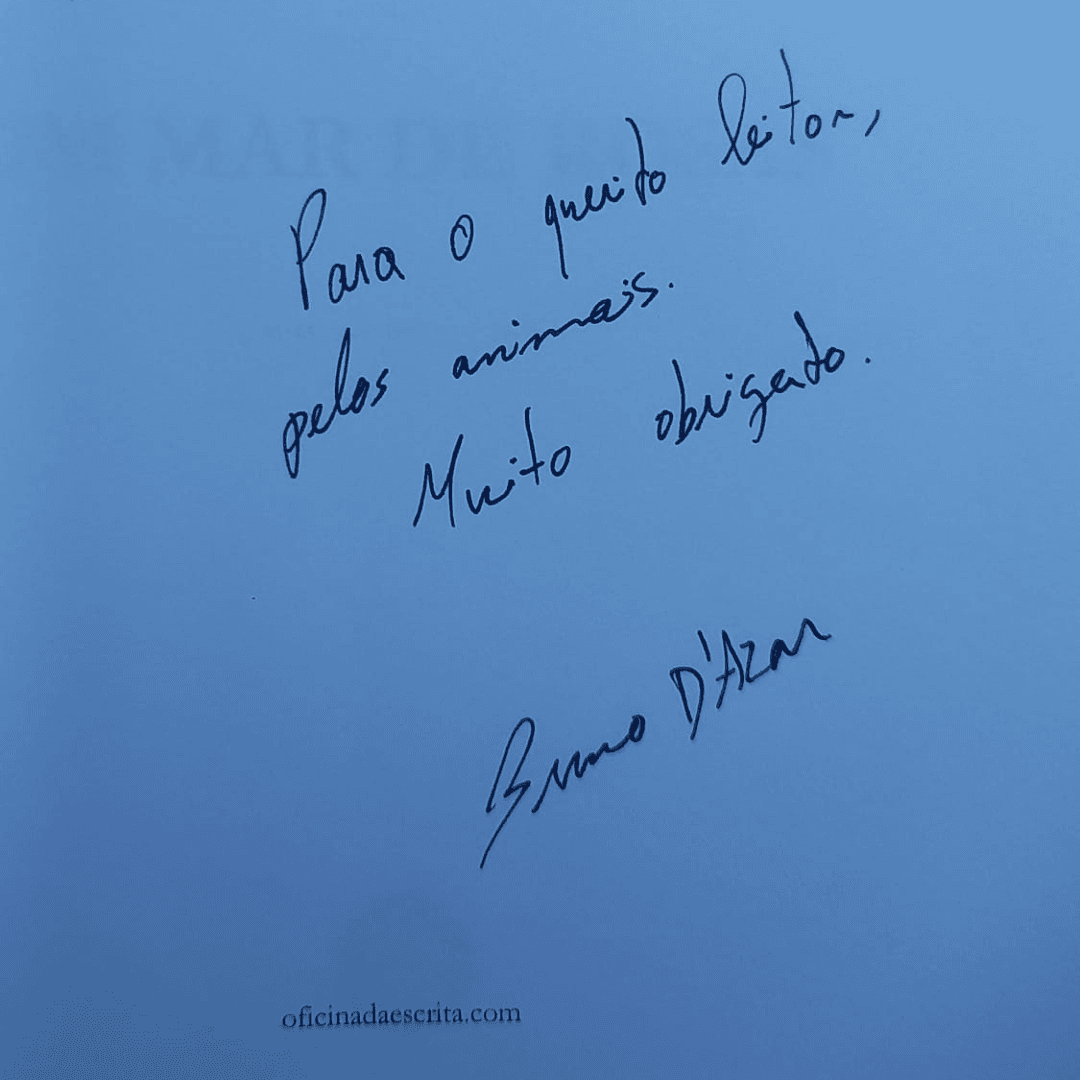 MAR DE
Para o querido leitor,
pelos animais.
Muito obrigado.
Bruno D'Azar
oficinadaescrita.com